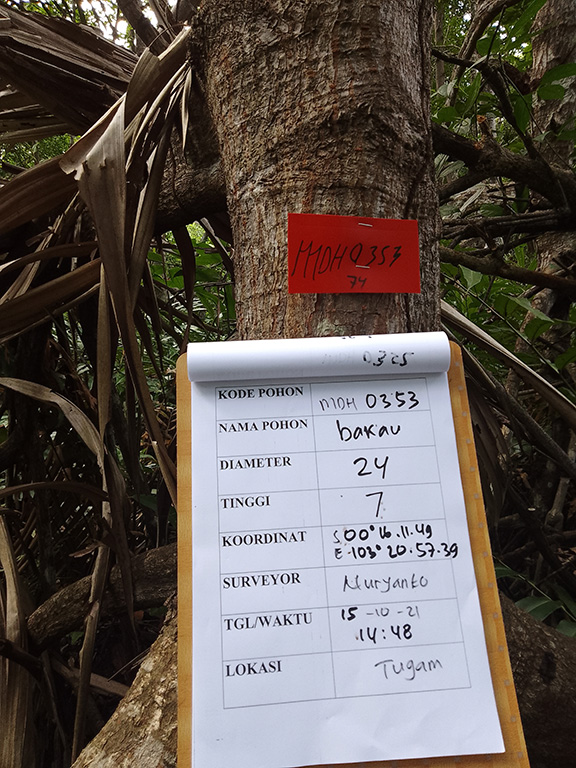 MDH 0353
74
0325
KODE POHON MDH 0353
NAMA POHON bakau
DIAMETER 24
TINGGI 7
KOORDINAT S 00° 16.11.49
E.103° 20.57.39
SURVEYOR Nuryanto
TGL/WAKTU 15-10-21
14:48
LOKASI Tugam